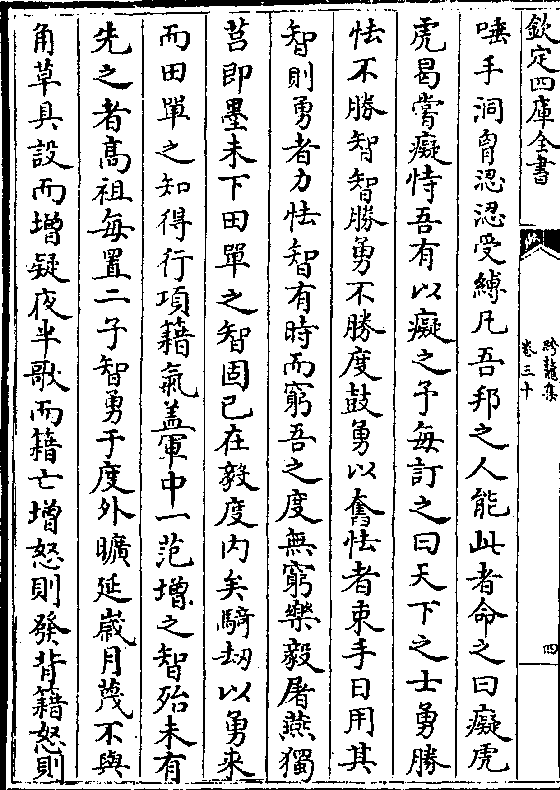 欽定四庫全書
跨鼇集
卷三十
四
唾手洞胷涊涊受縛凡吾邦之人能此者命之曰癡虎
虎曷嘗癡恃吾有以癡之予每訂之曰天下之士勇勝
怯不勝智智勝勇不勝度鼓勇以奮怯者束手日用其
智則勇者力怯智有時而窮吾之度無窮樂毅屠燕獨
莒即墨未下田單之智固已在毅度内矣騎劫以勇來
而田單之知得行項籍氣蓋軍中一范增之智殆未有
先之者髙祖每置二子智勇于度外曠延嵗月蔑不與
角草具設而增疑夜半歌而籍亡增怒則發背籍怒則